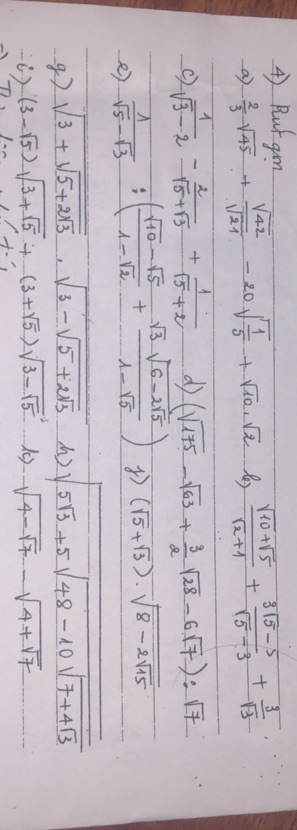 4) Rút gọn
a) 2/3 √45 + √42/√21 - 20√(1/5) + √10.√2 b) (√10+√5)/(√2+1) + (3√5-5)/(√5-3) + 3/√3
c) 1/(√3-2) - 2/(√5+√3) + 1/(√5+2) d) (√175 - √63 + 3/2 √28 - 6√7) : √7
e) 1/(√5-√3) : ((√10-√5)/(1-√2) + √3√(6-2√5)/(1-√5)) f) (√5+√3).√(8-2√15)
g) √(3+√(5+2√3)) . √(3-√(5+2√3)) h) √(5√3+5√(48-10√(7+4√3)))
i) (3-√5)√(3+√5) + (3+√5)√(3-√5) k) √(4-√7) - √(4+√7)